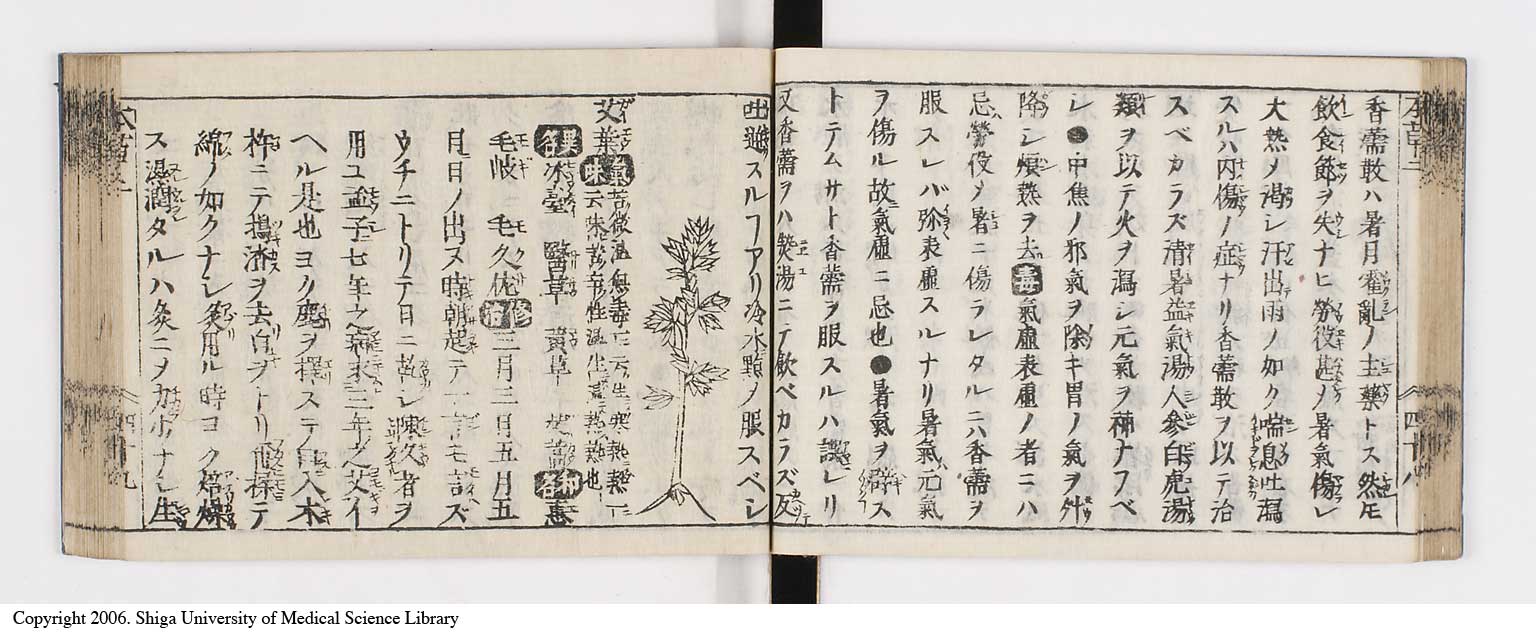 香薷散ハ暑月霍亂ノ主藥トス然圧
飲食節ヲ失ナヒ勞役甚メ暑氣傷レ
大熱ノ渴シ汗出雨ノ如ク喘息吐瀉
スルハ内傷ノ症ナリ香薷散ヲ以テ治
スベカラズ清暑益氣湯人參白虎湯
類ヲ以テ火ヲ瀉シ元氣ヲ補ナフベ
レ●中焦ノ邪氣ヲ除キ胃ノ氣ヲ
降シ煩熱ヲ去毒氣虛表虛ノ者ニハ
忌勞役メ暑ニ傷ラレタルニ六香薷ヲ
服スレバ弥表虛スルナリ暑氣元氣
ヲ傷ル故氣虛ニ忌也●暑氣ヲ辟ス
トテムサト香薷ヲ服スルハ誤レリ
又香薷ヲハ煎湯ニテ飲ベカラズ反
吐逆スルフアリ冷水點メ服スベシ
艾葉 氣味 苦微温無毒
云味苦辛性温生温熟熱也
異名 冰臺 醫草 黄草 和名 恵
毛岐 毛久佐 修治 三月三日五月五
月日ノ出ヌ時朝起テ一言モ言ズ
ウチニトリテ日ニ乾シ陳久者ヲ
用ユ孟子七年之病求三年ノ艾イ
ヘル是也ヨク塵ヲ擇ステ臼入木
杵ニテ搗渣ヲ去白ヲトリ
綿ノ如クナレ灸用ル時ヨク焙燥
ス濕潤タルハ灸ニメカ少ナシ生
本草二
四十八
四十九
Copyright 2006. Shiga University of Medical Science Library